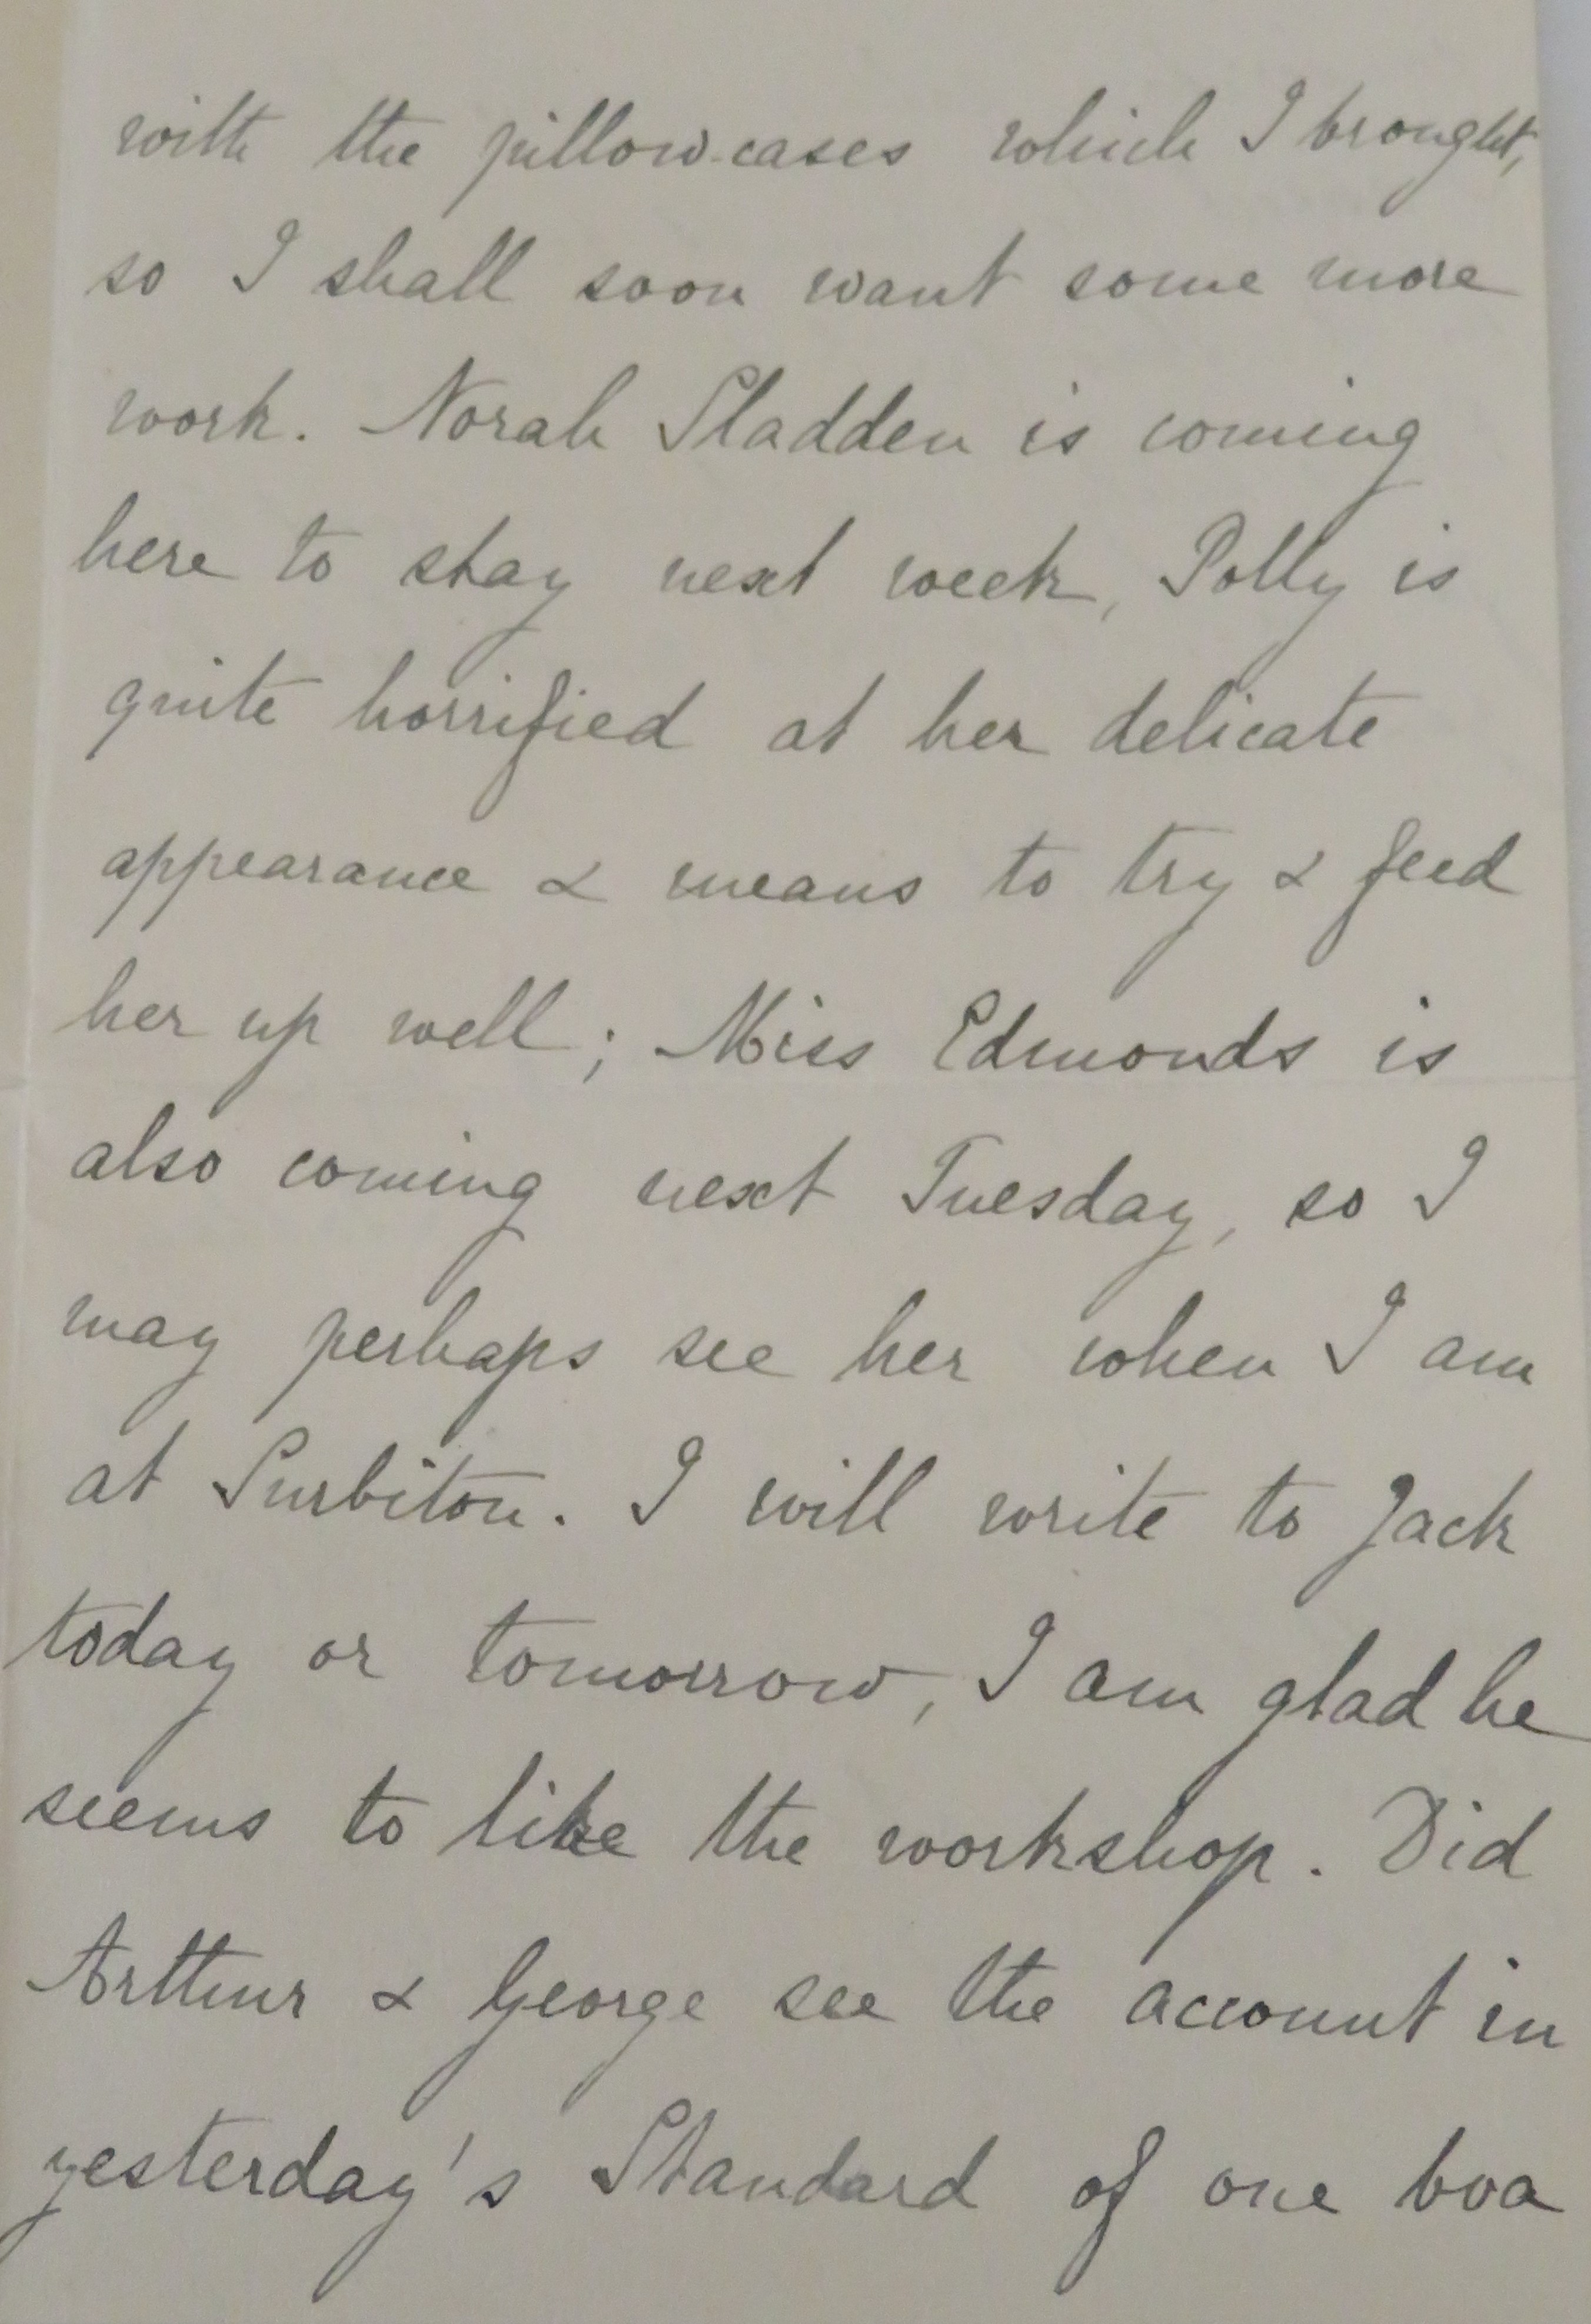 with the pillow-cases which I brought,
so I shall soon want some more
work. Norah Sladden is coming
here to stay next week, Polly is
quite horrified at her delicate
appearance & means to try & feed
her up well; Miss Edmonds is
also coming next Tuesday, so I
may perhaps see her when I am
at Surbiton. I will write to Jack
today or tomorrow, I am glad he
seems to like the workshop. Did
Arthur & George see the account in
yesterday's Standard of one boa